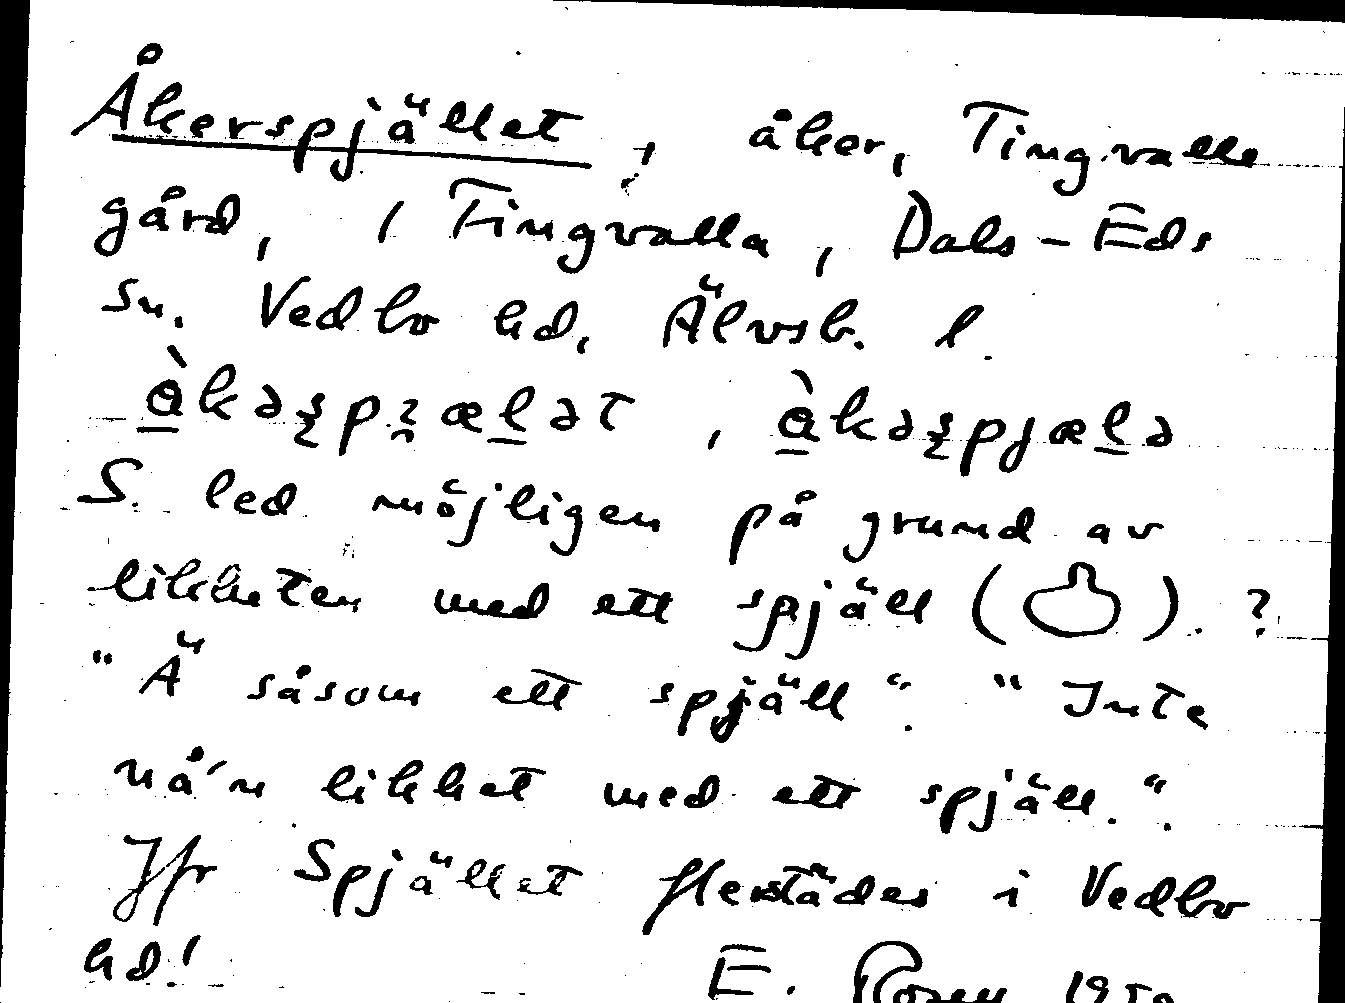 Åkerspjället, åker, Tingvalla
gård, / Tingvalla, Dals-Eds
sn. Vedbo hd, Älvsb. l.
S. led möjligen på grund av
likheten med ett spjäll ( ). ?
"Ä såsom ett spjäll". "Inte
nå'n likhet med ett spjäll.".
Jfr Spjället flerstädes i Vedbo
hd!
E. Rosén 1950